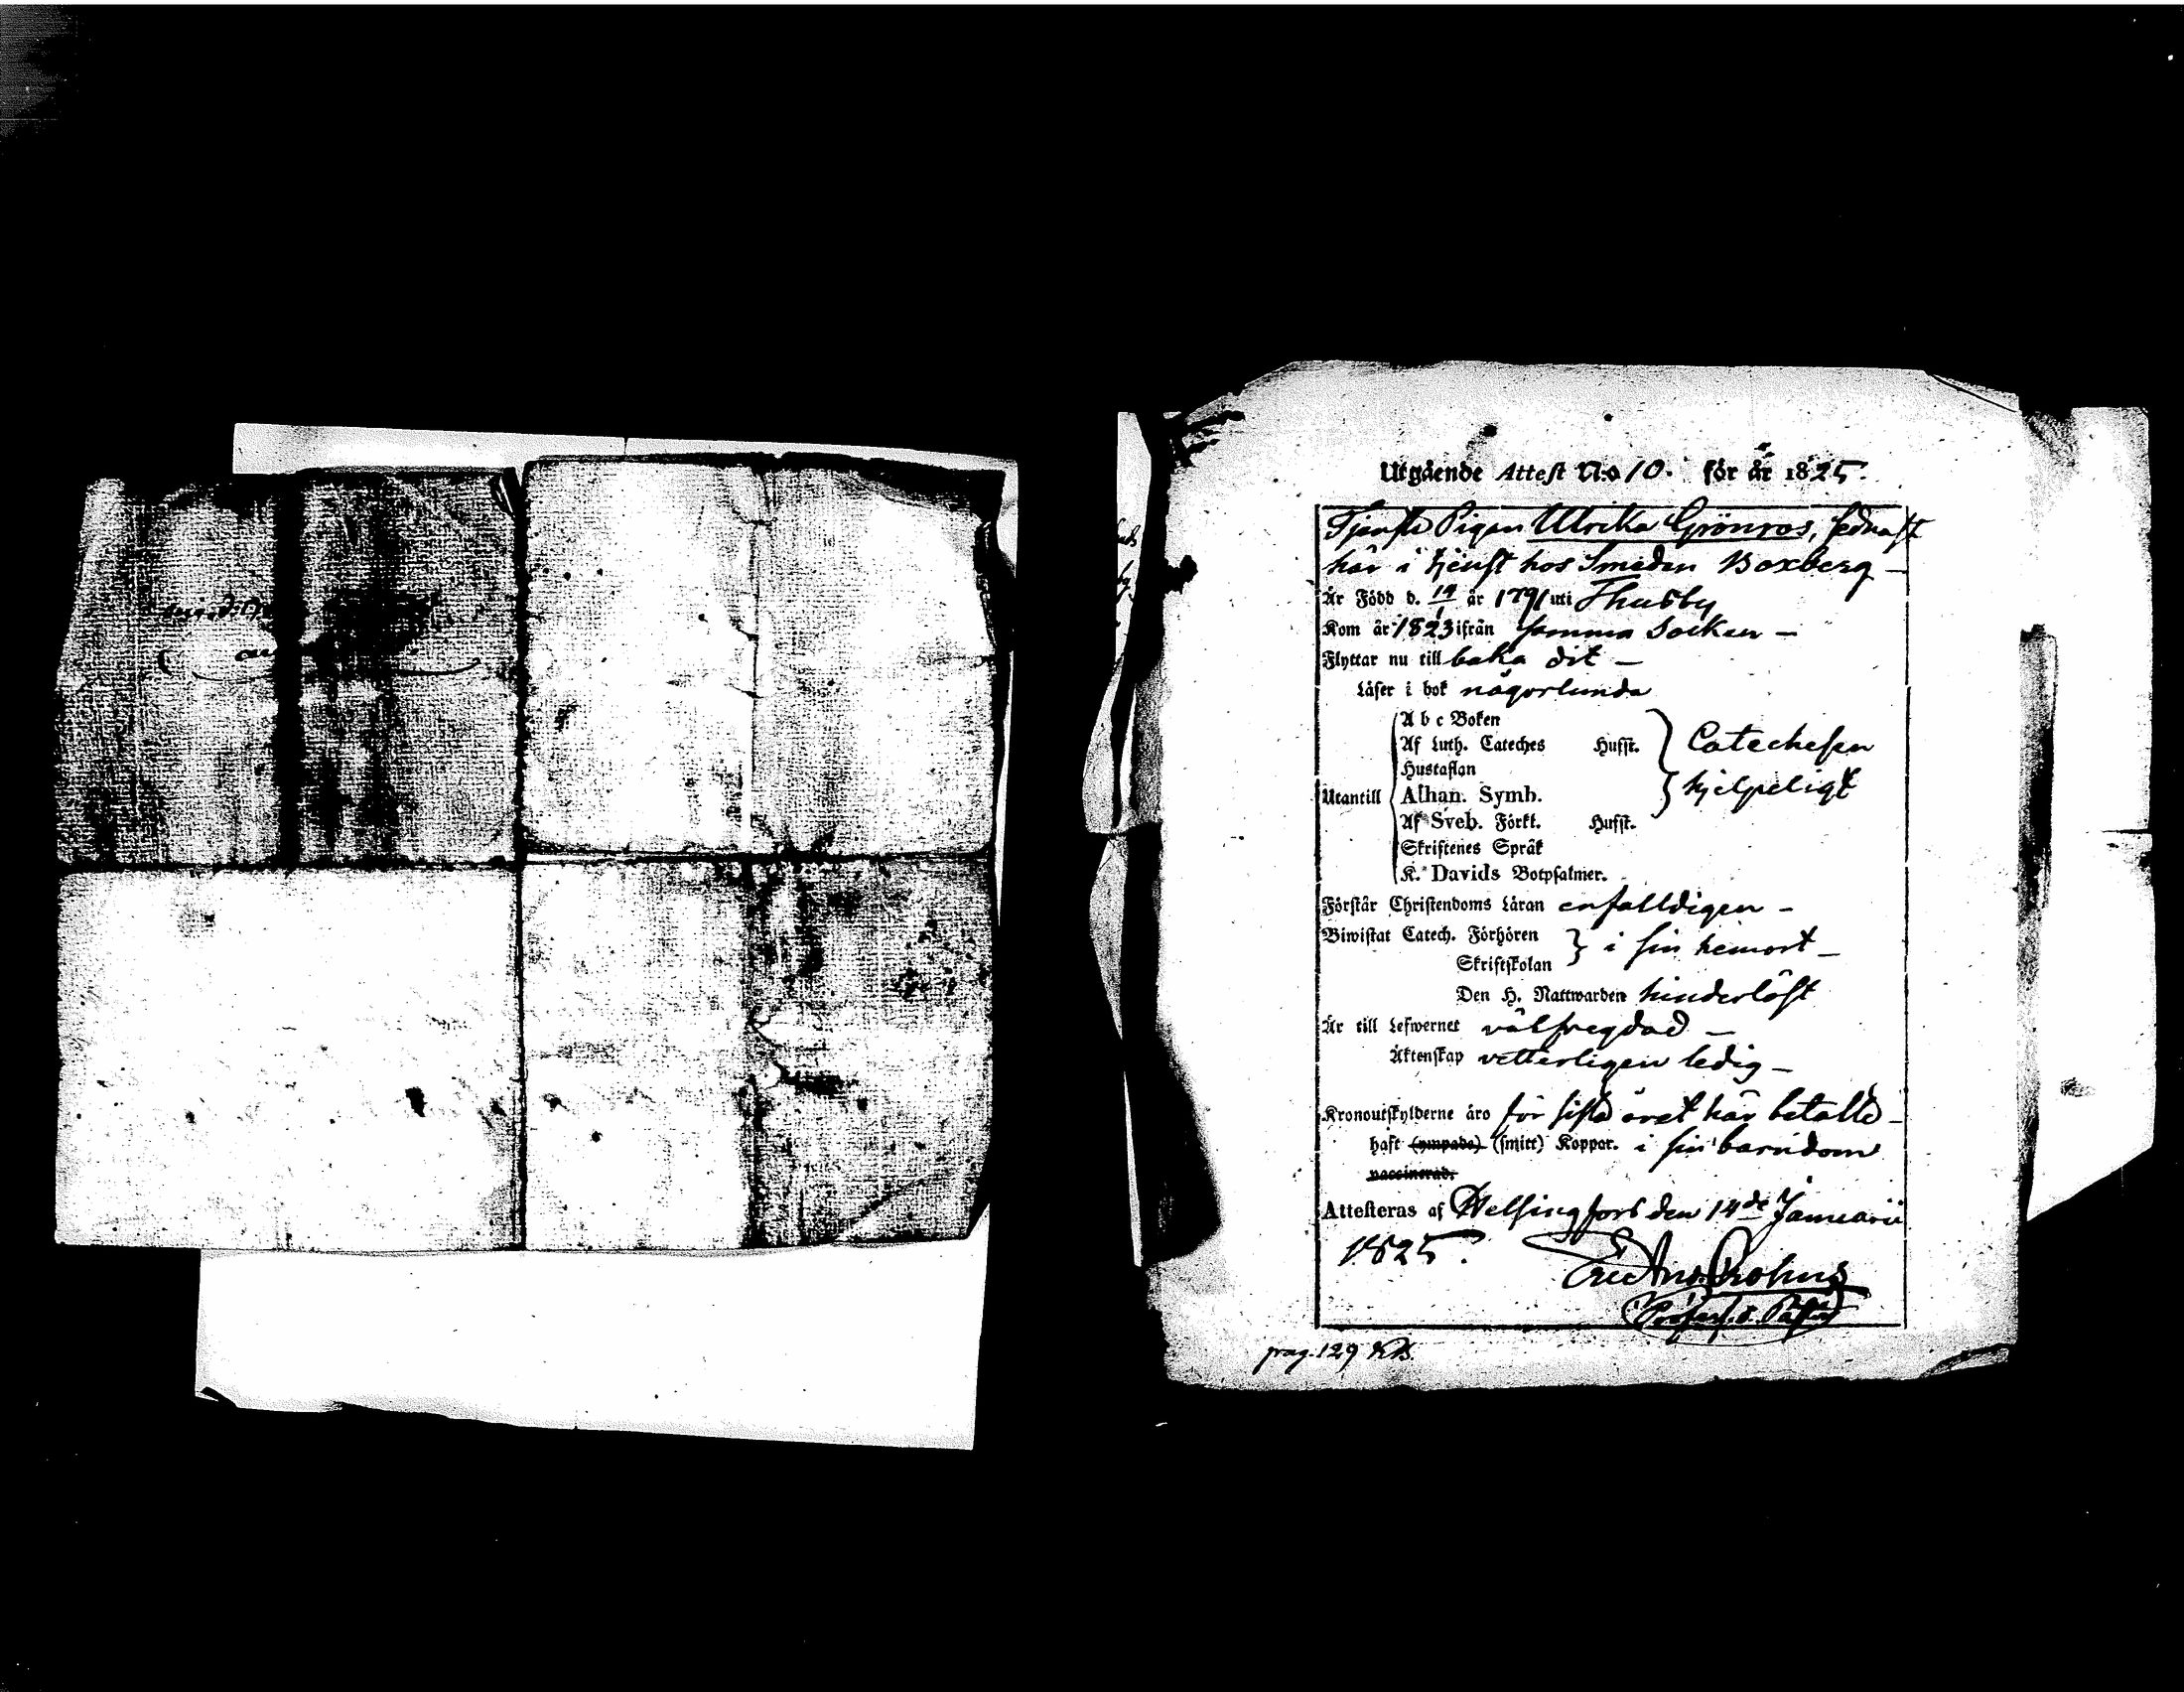 Utgående Attest N:o 10. för år 1825.
Tjenste Pigan Ulrika Grönros, sednast
här i tjenst hos Smeden Boxberg –
Är Född d. 19/1 år 1791 uti Thusby
Kom år 1823 ifrån samma Socken –
Flyttar nu till baka dit –
Läser i bok någorlunda
A b c Boken
Af Luth. Cateches Hufst. Catechesen
Hustaflan
Utantill Athan. Symb. hjelpeligt
Af Sveb. Förkl. Hufst.
Skriftenes Språk
K. Davids Botpsalmer.
Förstår Christendoms Läran enfalldigen –
Biwistat Catech. Förhören i sin hemort –
Skriftskolan
Den H. Nattwarden hinderlöst
Är till Lefwernet välfregdad –
Äktenskap vetterligen ledig –
Kronoutskylderne äro för sista året här betalte –
haft (ympade) (smitt) Koppor. i sin barndom
vaccinerad.
Attesteras af Helsingfors den 14de Januarii
1825.
pag. 129 KB.